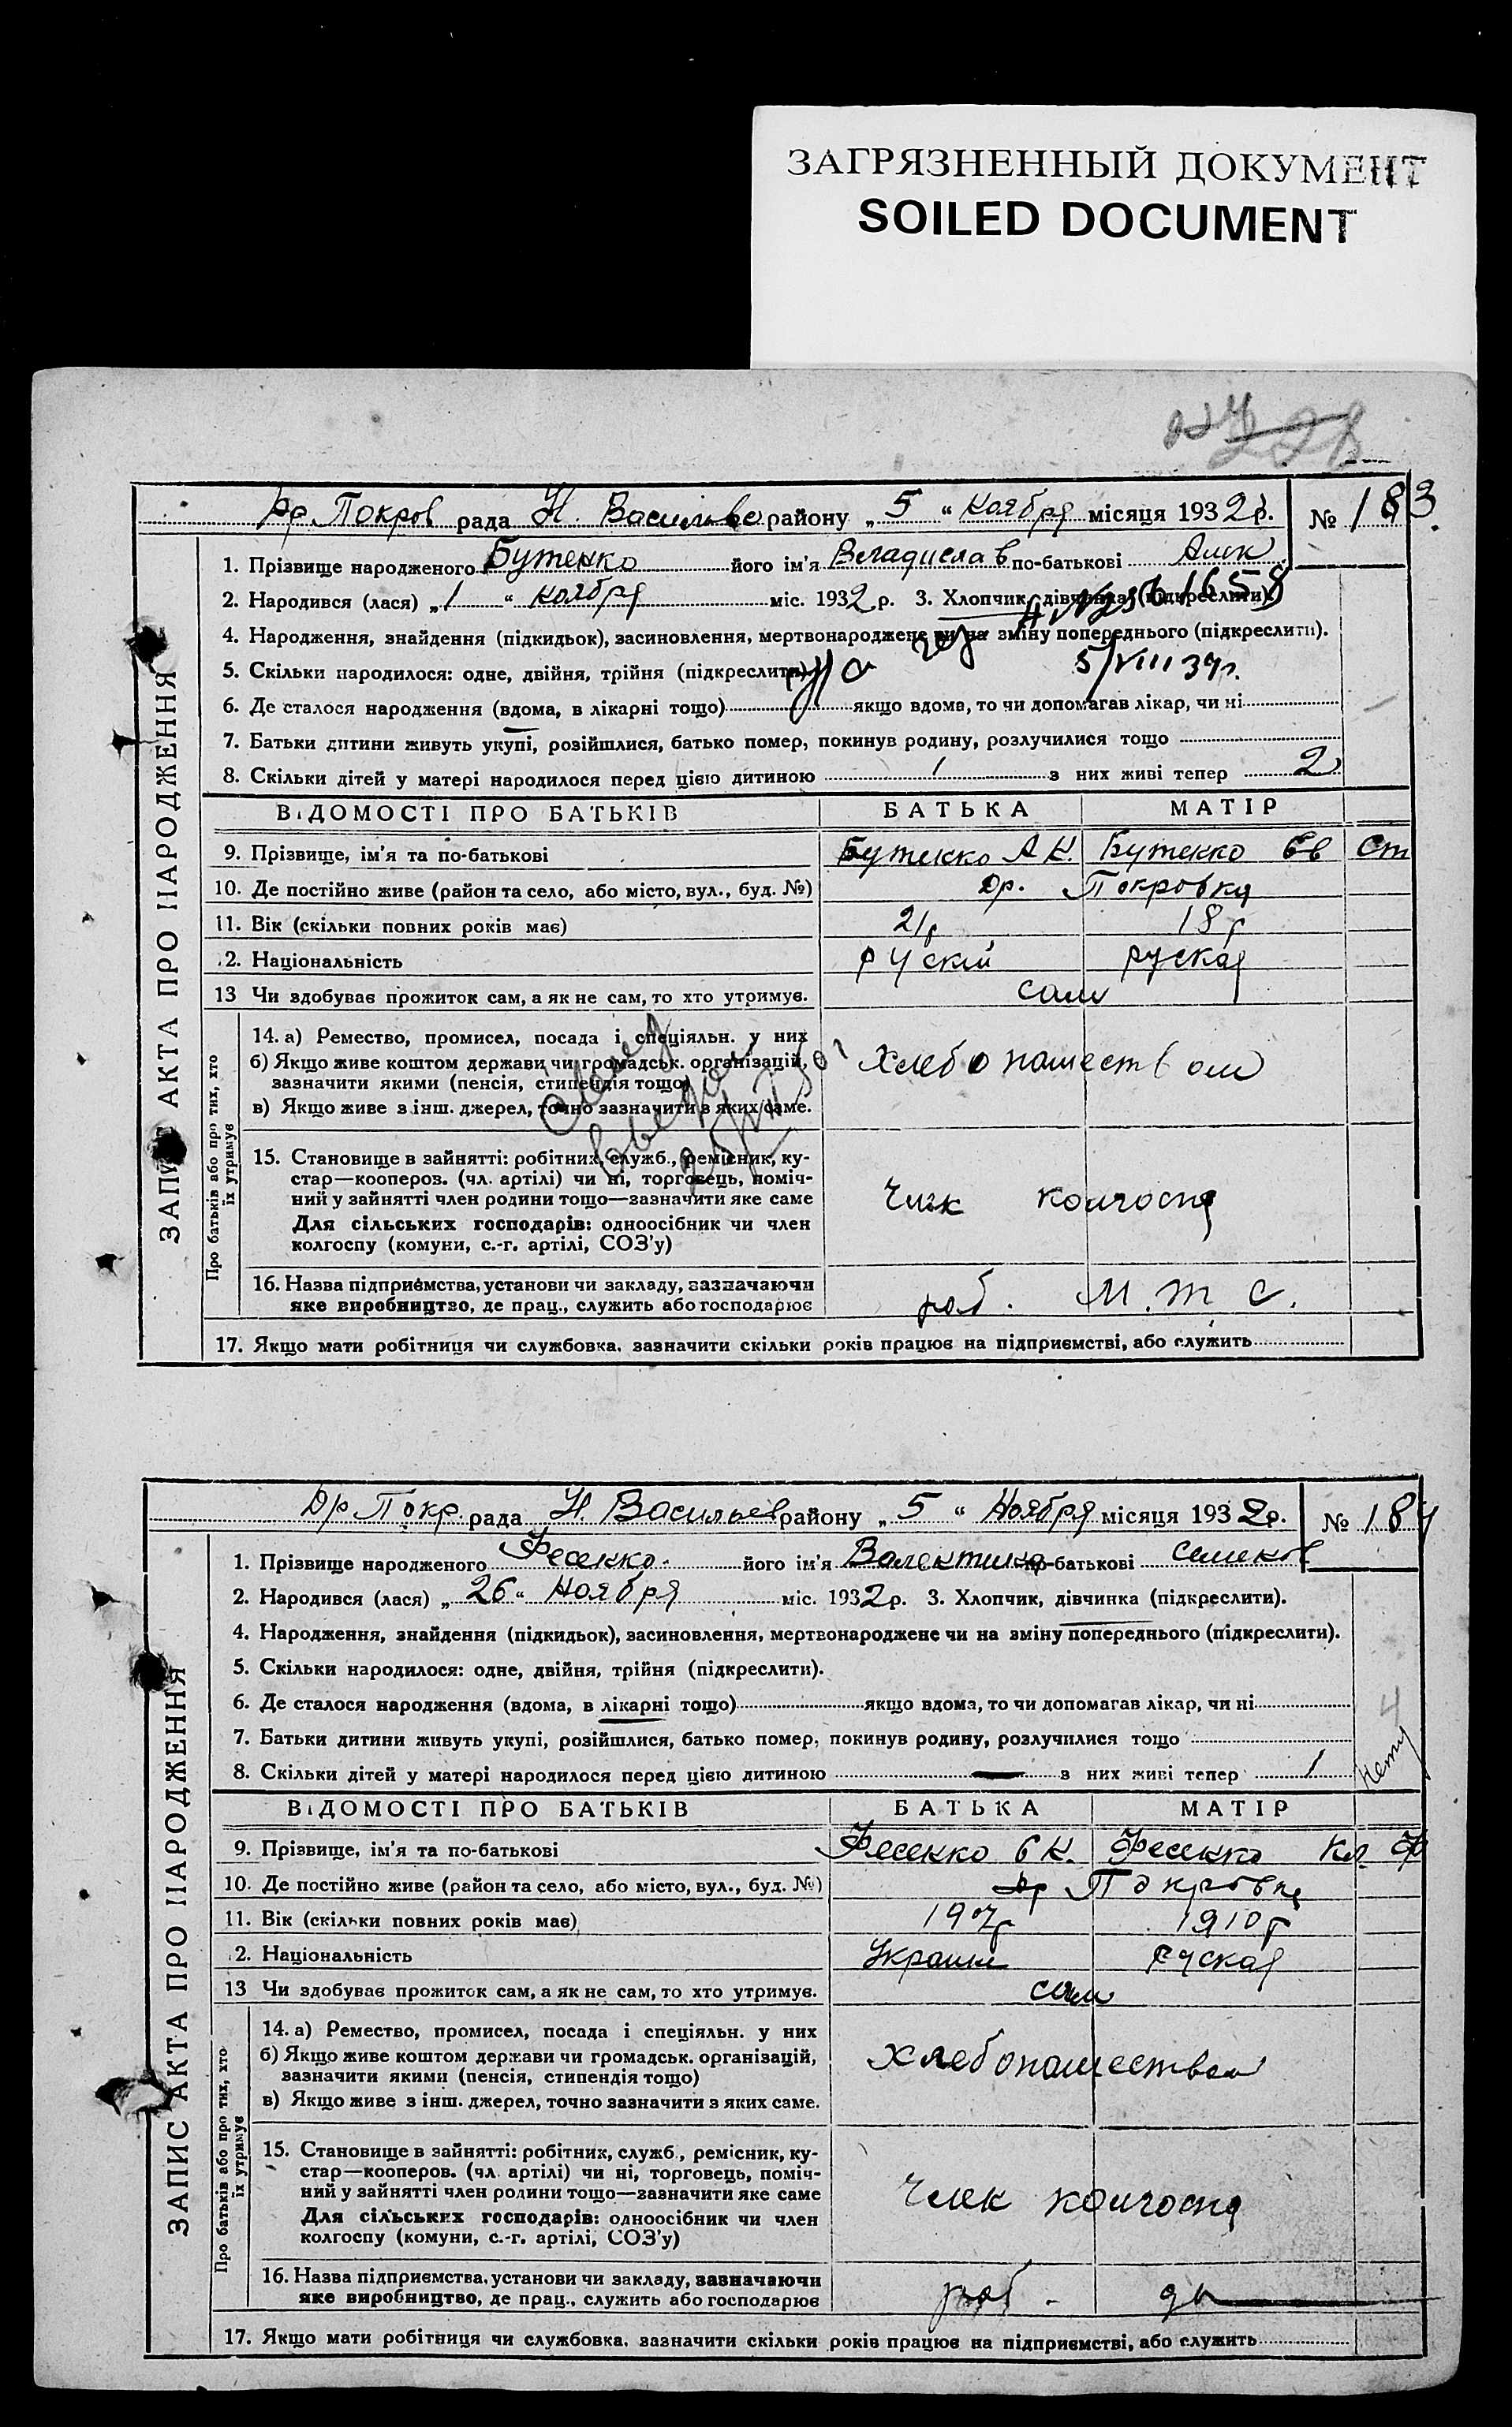 ЗАГРЯЗНЕННЫЙ ДОКУМЕНТ
SOILED DOCUMENT
Др. Покров рада Н. Васильево району „ 5 “ Ноября місяця 1932 р. № 183
1. Прізвище народженого Бутенко його ім'я Владислав по-батькові Алек
2. Народився (лася) „ 1 “ ноября міс. 1932 р. 3. Хлопчик, дівчинка (підкреслити).
4. Народження, знайдення (підкидьок), засиновлення, мертвонароджене чи на зміну попереднього (підкреслити).
5. Скільки народилося: одне, двійня, трійня (підкреслити) 5/VIII 34р.
6. Де сталося народження (вдома, в лікарні тощо) якщо вдома, то чи допомагав лікар, чи ні
7. Батьки дитини живуть укупі, розійшлися, батько помер, покинув родину, розлучилися тощо
8. Скільки дітей у матері народилося перед цією дитиною 1 з них живі тепер 2
ВІДОМОСТІ ПРО БАТЬКІВ БАТЬКА МАТІР
9. Прізвище, ім'я та по-батькові Бутенко А К. Бутенко Ев Ст
10. Де постійно живе (район та село, або місто, вул., буд. №) Др. Покровка
11. Вік (скільки повних років має) 21р 18р
2. Національність руский руская
13 Чи здобуває прожиток сам, а як не сам, то хто утримує. сам
14. а) Ремество, промисел, посада і спеціяльн. у них
б) Якщо живе коштом держави чи громадськ. організацій,
зазначити якими (пенсія, стипендія тощо)
в) Якщо живе з інш. джерел, точно зазначити з яких саме.
Хлебопашеством
15. Становище в зайнятті: робітник, служб., ремісник, ку-
стар—коопероз. (чл. артілі) чи ні, торговець, поміч-
ний у зайнятті член родини тощо—зазначити яке саме
Для сільських господарів: одноосібник чи член
колгоспу (комуни, с.-г. артілі, СОЗ'у)
Член колгоспа
16. Назва підприємства, установи чи закладу, зазначаючи
яке виробництво, де прац., служить або господарює
раб. М. Т. С.
17. Якщо мати робітниця чи службовка, зазначити скільки років працює на підприємстві, або служить
ЗАПИС АКТА ПРО НАРОДЖЕННЯ
Про батьків або про тих, хто
їх утримує
Др Покр. рада Н. Васильев району „ 5 “ Ноября місяця 1932 р. № 184
1. Прізвище народженого Фесенко його ім'я Валентина по-батькові Семенов
2. Народився (лася) „ 26 “ Ноября міс. 1932 р. 3. Хлопчик, дівчинка (підкреслити).
4. Народження, знайдення (підкидьок), засиновлення, мертвонароджене чи на зміну попереднього (підкреслити).
5. Скільки народилося: одне, двійня, трійня (підкреслити).
6. Де сталося народження (вдома, в лікарні тощо) якщо вдома, то чи допомагав лікар, чи ні
7. Батьки дитини живуть укупі, розійшлися, батько помер, покинув родину, розлучилися тощо
8. Скільки дітей у матері народилося перед цією дитиною — з них живі тепер 1
ВІДОМОСТІ ПРО БАТЬКІВ БАТЬКА МАТІР
9. Прізвище, ім'я та по-батькові Фесенко С К. Фесенко Кл. Ф
10. Де постійно живе (район та село, або місто, вул., буд. №) Др Покровка
11. Вік (скільки повних років має) 1907р 1910р
2. Національність Украин руская
13 Чи здобуває прожиток сам, а як не сам, то хто утримує. сам
14. а) Ремество, промисел, посада і спеціяльн. у них
б) Якщо живе коштом держави чи громадськ. організацій,
зазначити якими (пенсія, стипендія тощо)
в) Якщо живе з інш. джерел, точно зазначити з яких саме.
Хлебопашеством
15. Становище в зайнятті: робітник, служб., ремісник, ку-
стар—кооперов. (чл. артілі) чи ні, торговець, поміч-
ний у зайнятті член родини тощо—зазначити яке саме
Для сільських господарів: одноосібник чи член
колгоспу (комуни, с.-г. артілі, СОЗ'у)
Член колгоспа
16. Назва підприємства, установи чи закладу, зазначаючи
яке виробництво, де прац., служить або господарює
раб.
17. Якщо мати робітниця чи службовка, зазначити скільки років працює на підприємстві, або служить
ЗАПИС АКТА ПРО НАРОДЖЕННЯ
Про батьків або про тих, хто
їх утримує